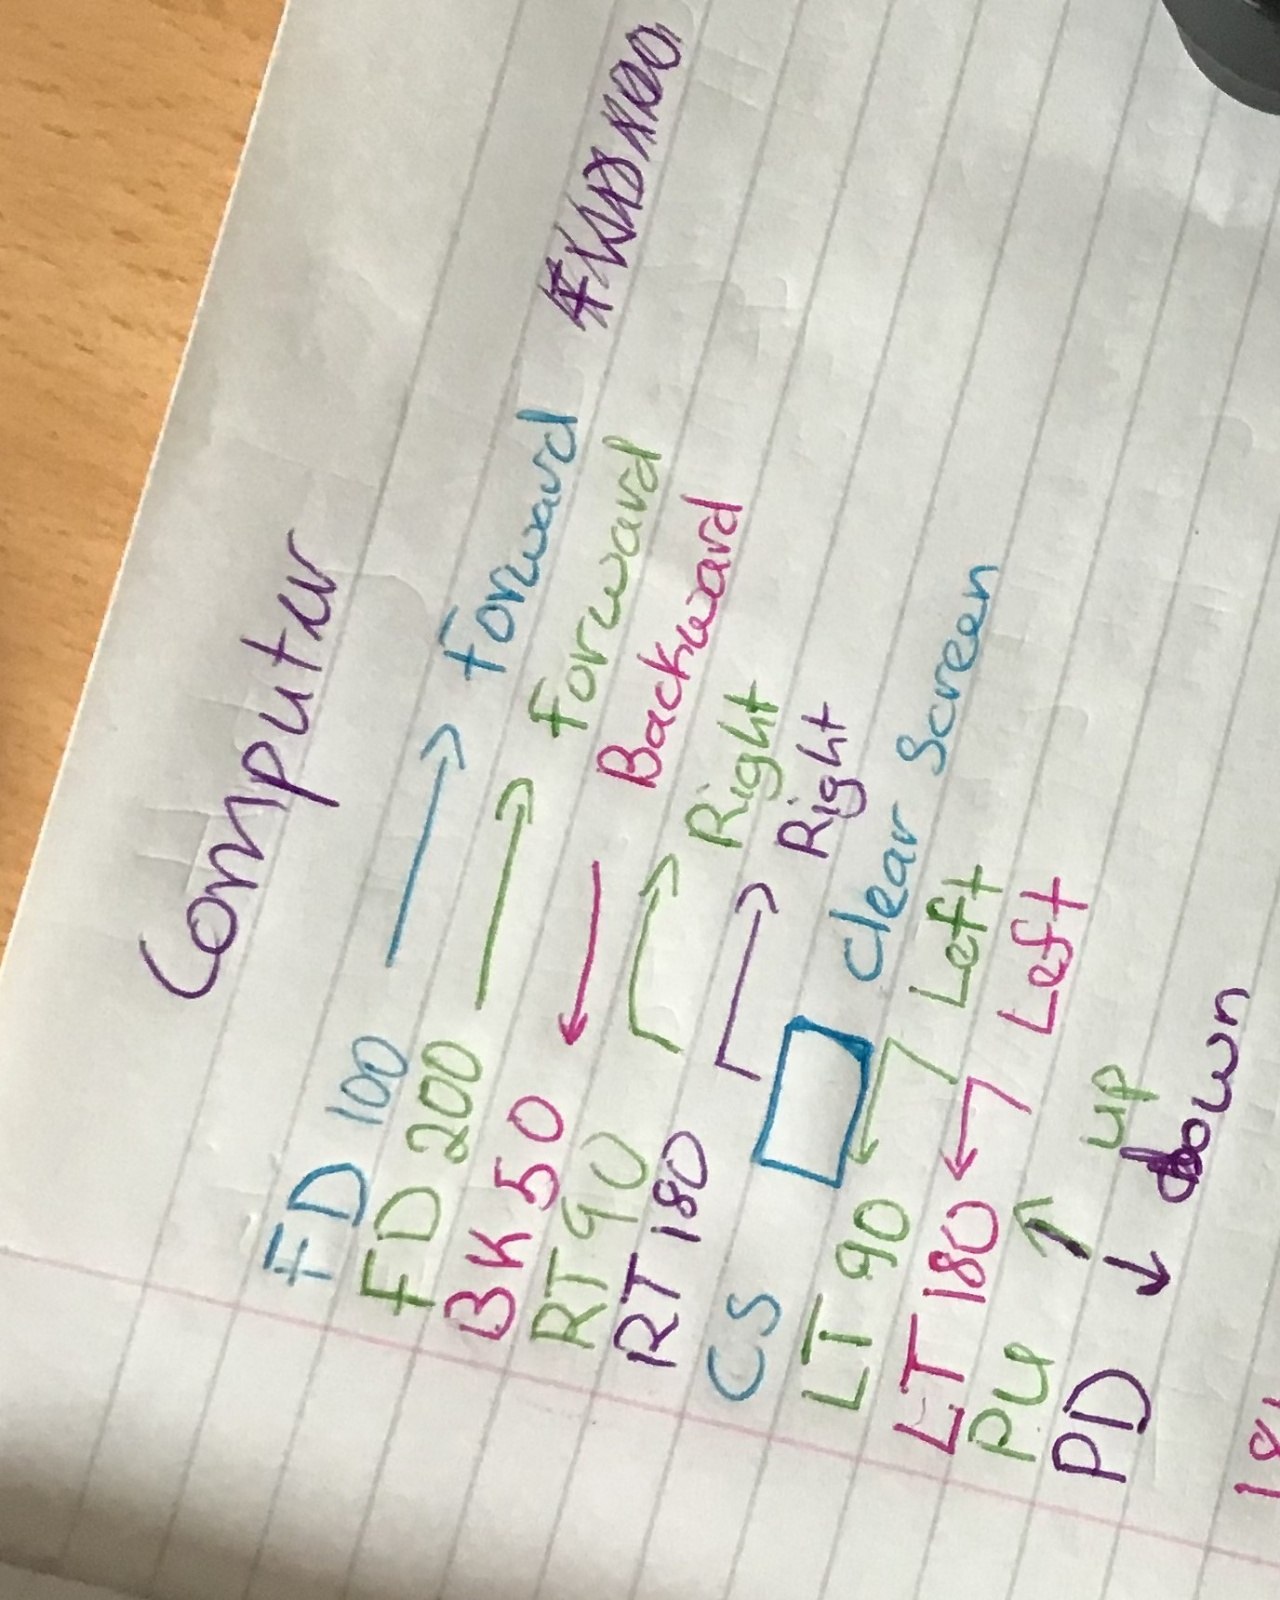 Computer
FD 100 → Forward
FD 200 → Forward
BK 50 ← Backward
RT 90 Right
RT 180 Right
CS Clear Screen
LT 90 Left
LT 180 Left
PU ↑ up
PD ↓ down